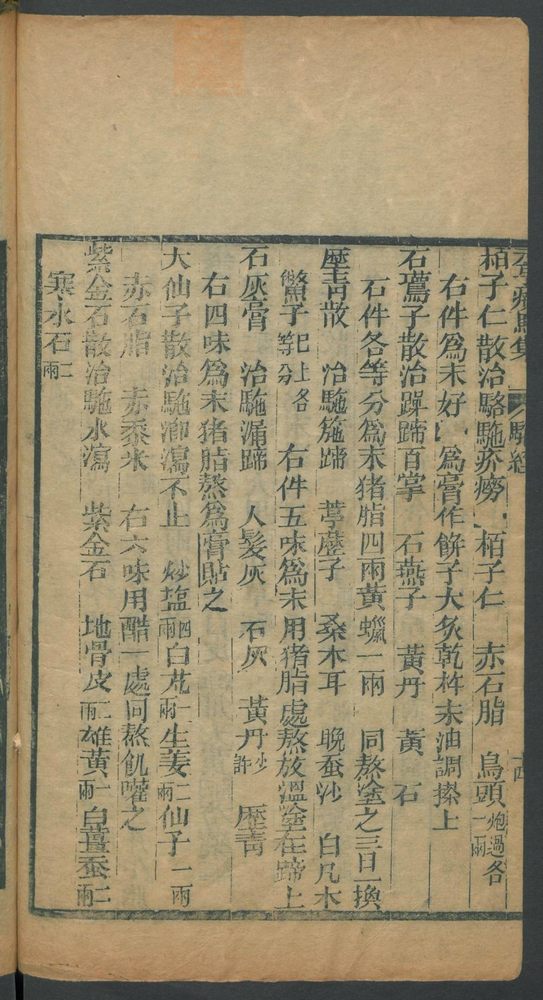 栢子仁散治駱駞疥癆 栢子仁 赤石脂 烏頭炮過各一兩
右件爲末好 爲膏作餅子大炙乾杵末油調搽上
石鷰子散治蹕蹄百掌 石燕子 黃丹 黃 石
右件各等分爲末猪脂四兩黃蠟二兩 同熬塗之三日一換
瀝青散 治駞施蹄 葶藶子 桑木耳 晚蚕沙 白凡木
鱉子已上各等分 右件五味爲末用猪脂處熬放溫塗在蹄上
石灰膏 治駞漏蹄 人髮灰 石灰 黃丹少許 瀝青
右四味爲末猪脂熬爲膏貼之
大仙子散治駞瀉不止 炒塩四兩白芃一兩生姜二兩仙子一兩
赤石脂 赤黍米 右六味用醋一處同熬飢嚾之
紫金石散治駞水瀉 紫金石 地骨皮二兩雄黃一兩白薑蚕二兩
寒水石二兩